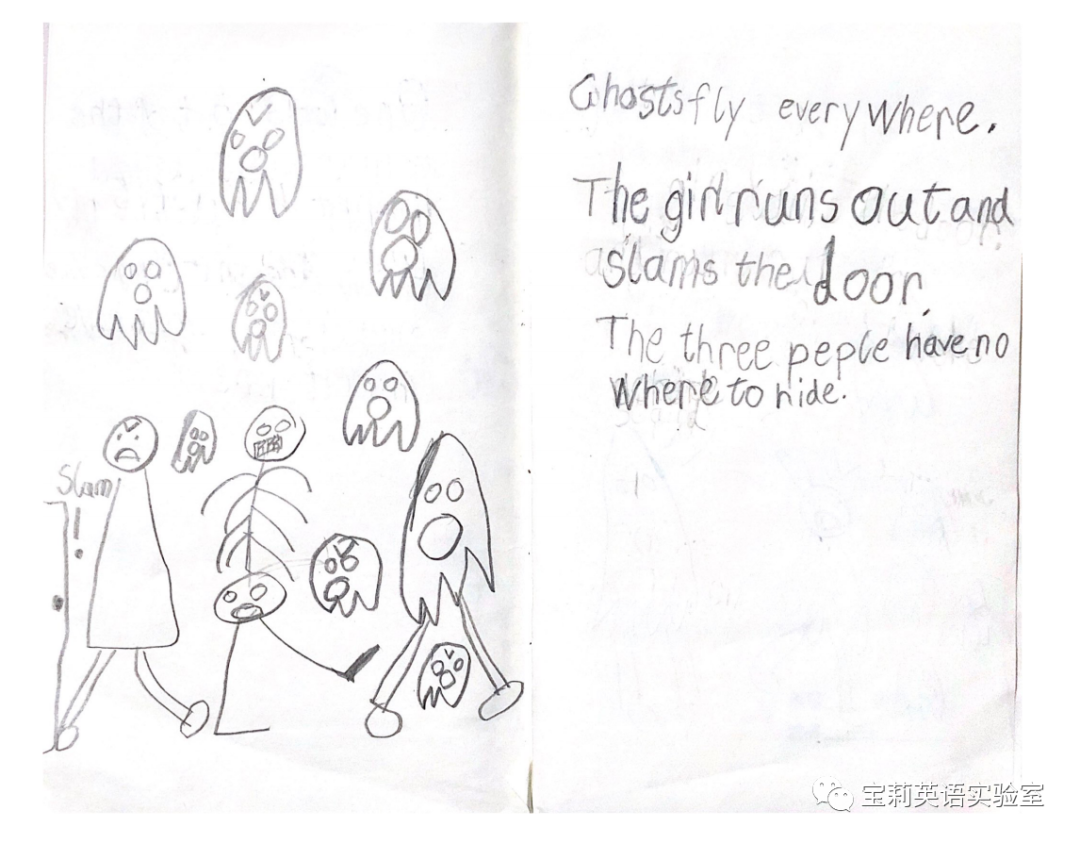 Ghosts fly everywhere.
The girl runs out and
slams the door.
The three peple have no
where to hide.
Slam
!
宝莉英语实验室